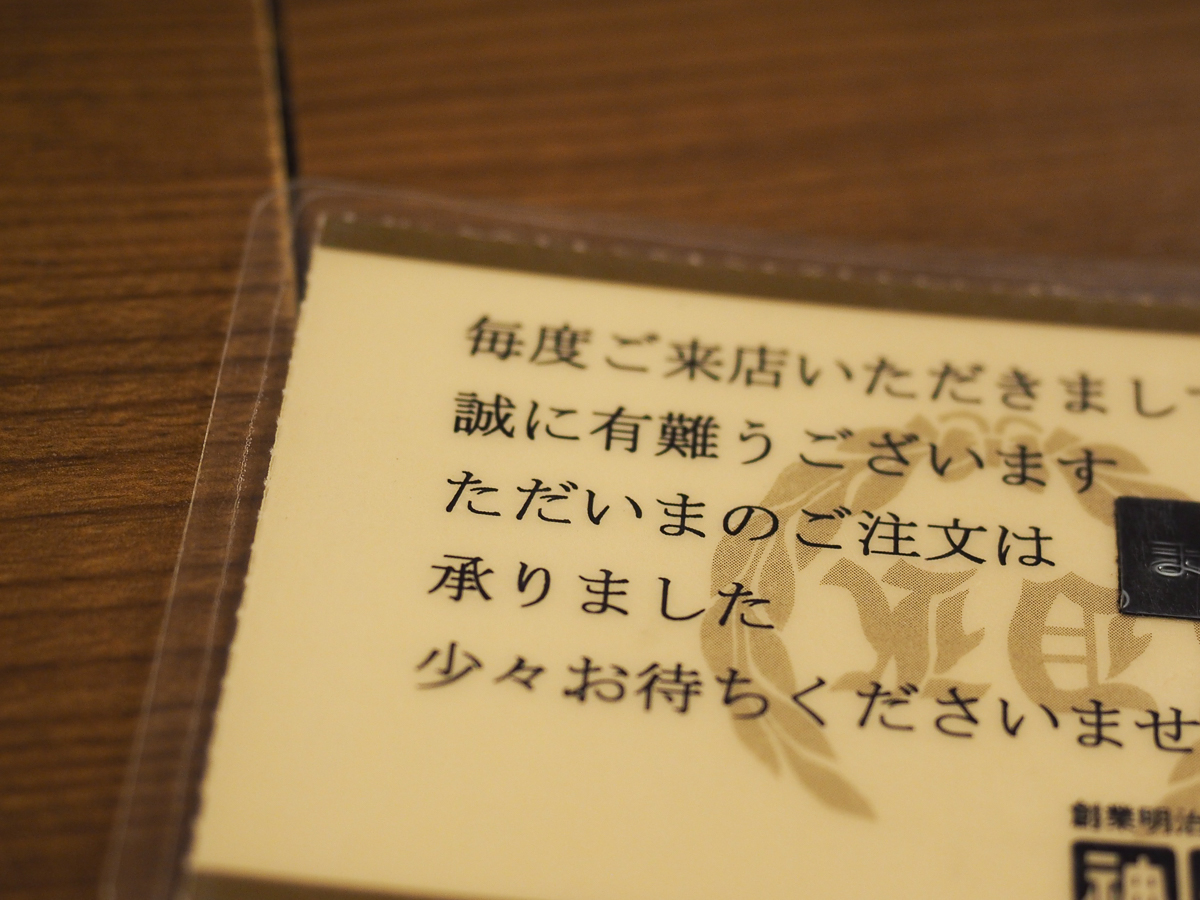 毎度ご来店いただきまし
誠に有難うございます
ただいまのご注文は
承りました
少々お待ちくださいませ
創業明治
神